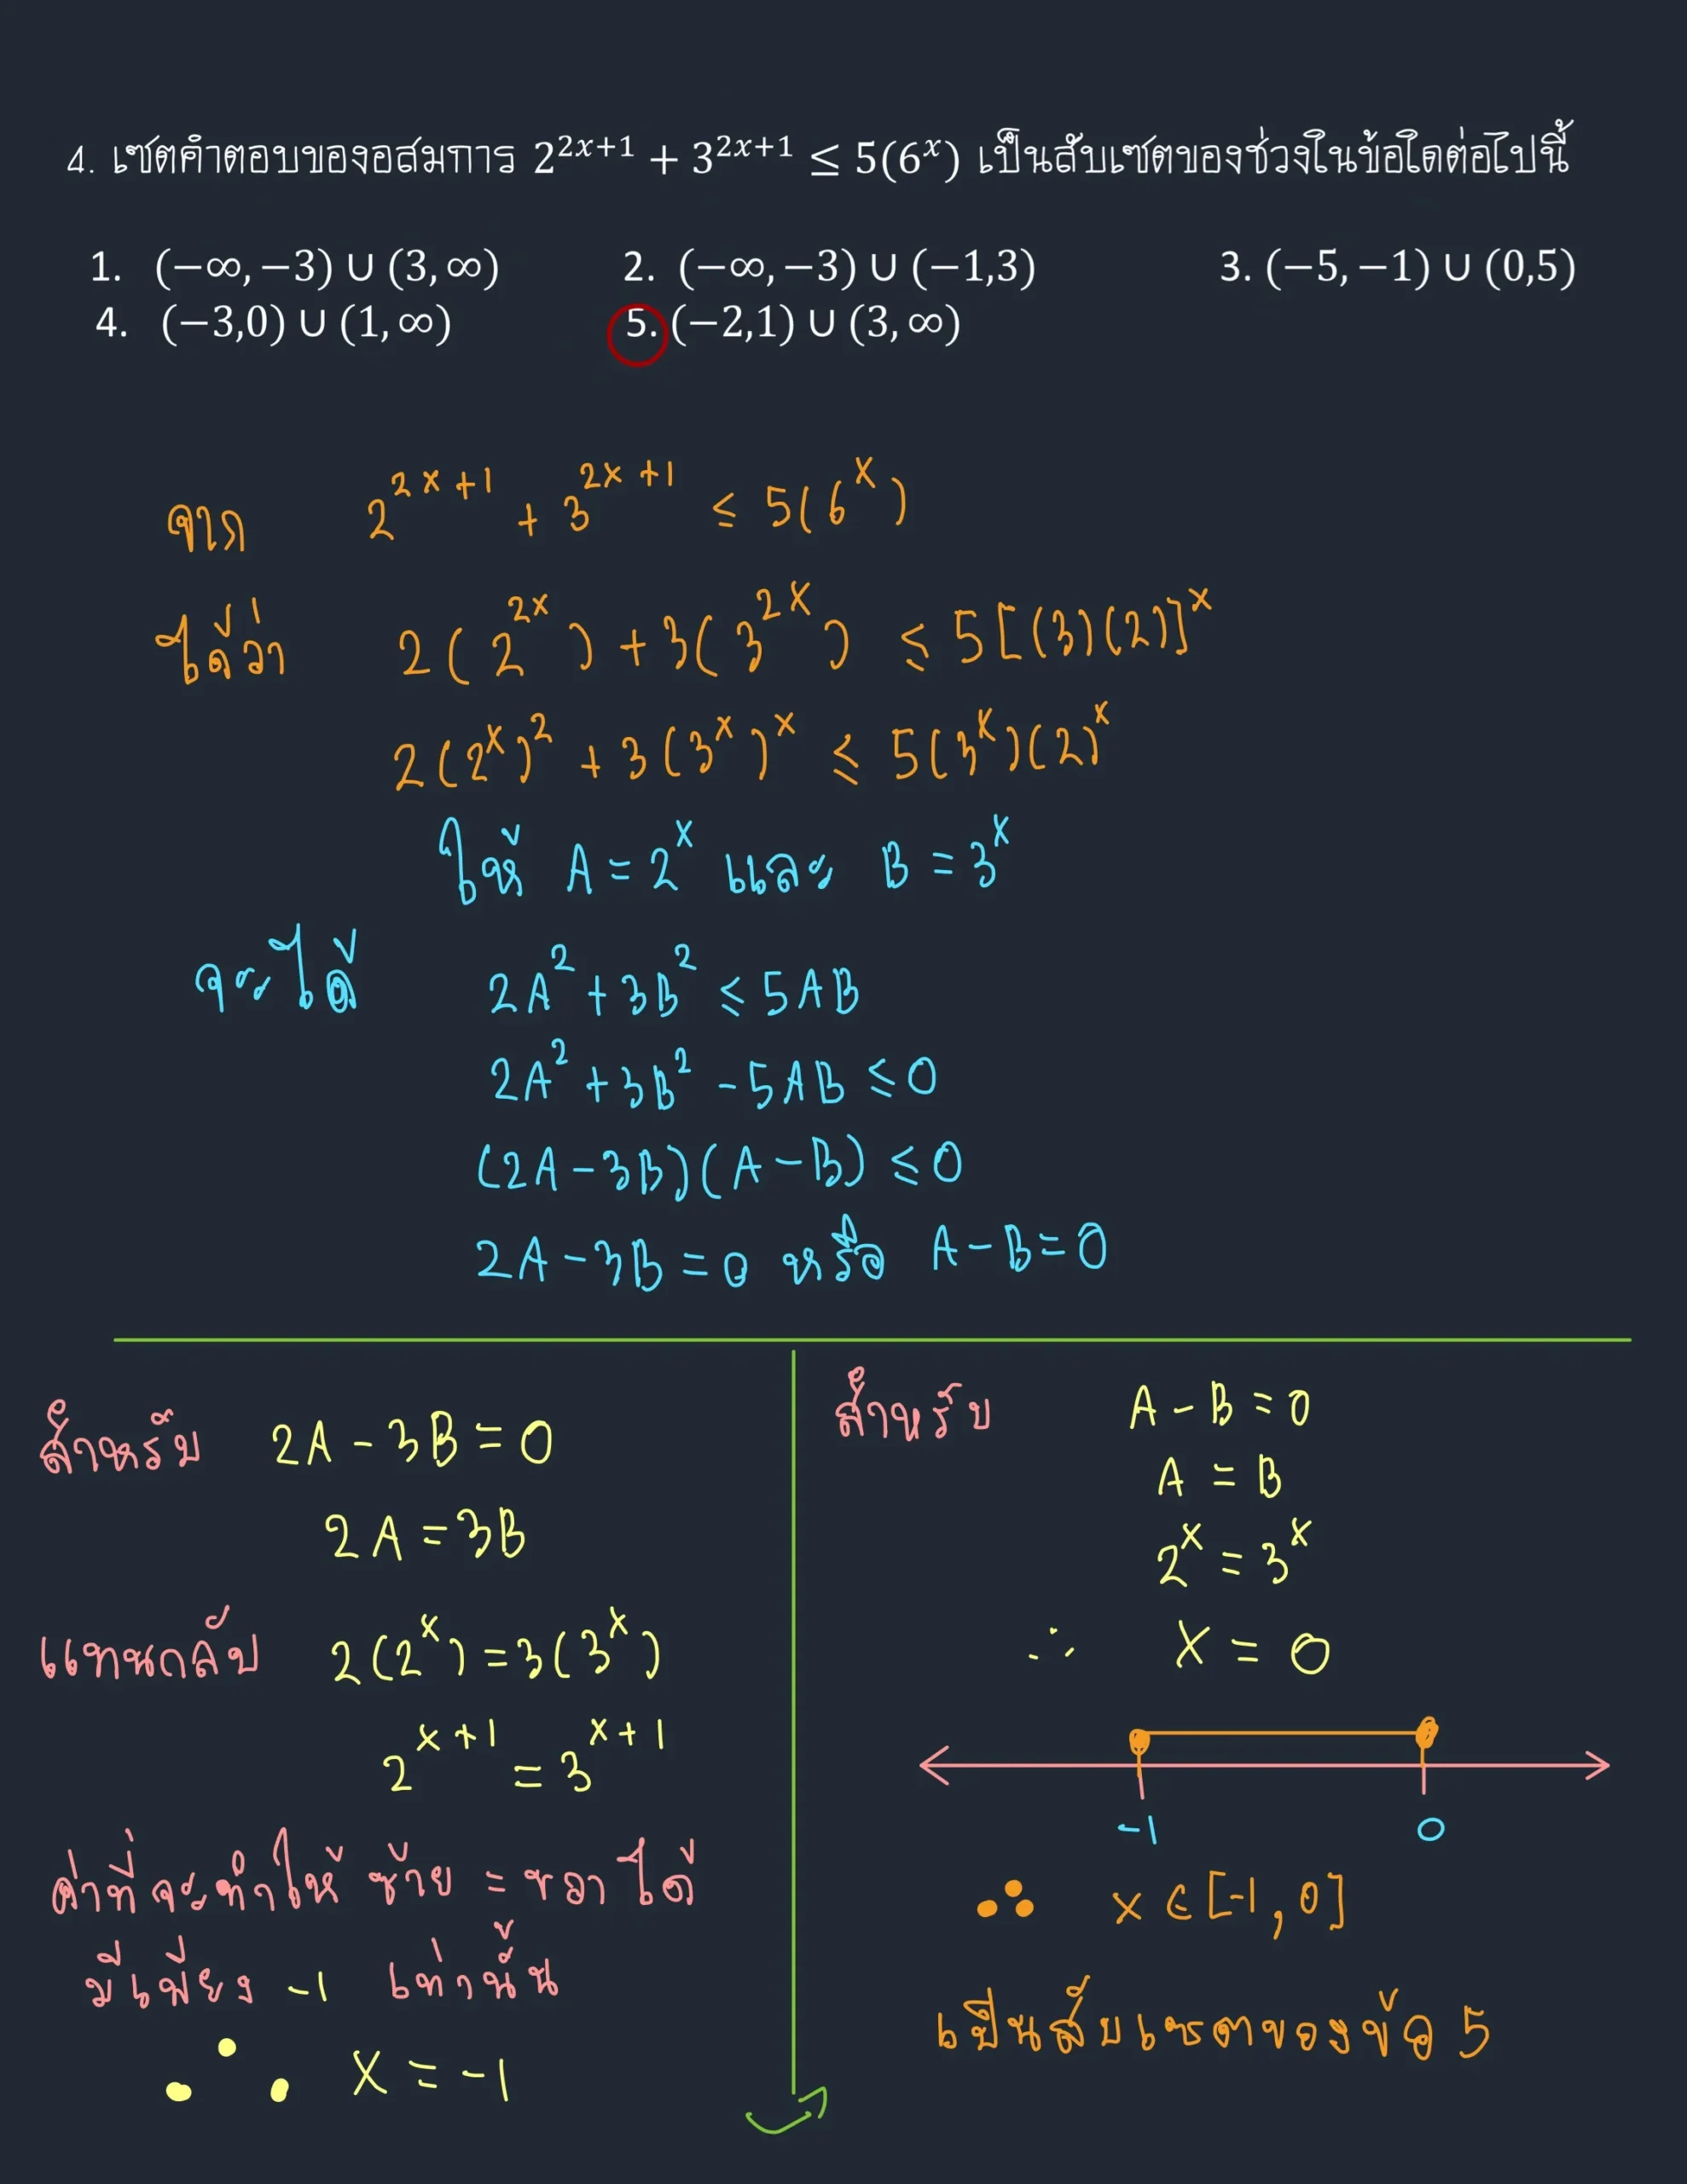 4. เซตคำตอบของอสมการ 2^{2x+1} + 3^{2x+1} ≤ 5(6^x) เป็นสับเซตของช่วงในข้อใดต่อไปนี้
1. (−∞, −3) ∪ (3, ∞) 2. (−∞, −3) ∪ (−1,3) 3. (−5, −1) ∪ (0,5)
4. (−3,0) ∪ (1, ∞) 5. (−2,1) ∪ (3, ∞)
จาก 2^{2x+1} + 3^{2x+1} ≤ 5(6^x)
ได้ว่า 2(2^{2x}) + 3(3^{2x}) ≤ 5[(3)(2)]^x
2(2^x)^2 + 3(3^x)^x ≤ 5(3^x)(2)^x
ให้ A = 2^x และ B = 3^x
จะได้ 2A^2 + 3B^2 ≤ 5AB
2A^2 + 3B^2 - 5AB ≤ 0
(2A - 3B)(A - B) ≤ 0
2A - 3B = 0 หรือ A - B = 0
สำหรับ 2A - 3B = 0
2A = 3B
แทนกลับ 2(2^x) = 3(3^x)
2^{x+1} = 3^{x+1}
ค่าที่จะทำให้ ซ้าย = ขวา ได้
มีเพียง -1 เท่านั้น
∴ x = -1
สำหรับ A - B = 0
A = B
2^x = 3^x
∴ x = 0
-1 0
∴ x ∈ [-1, 0]
เป็นสับเซตของข้อ 5